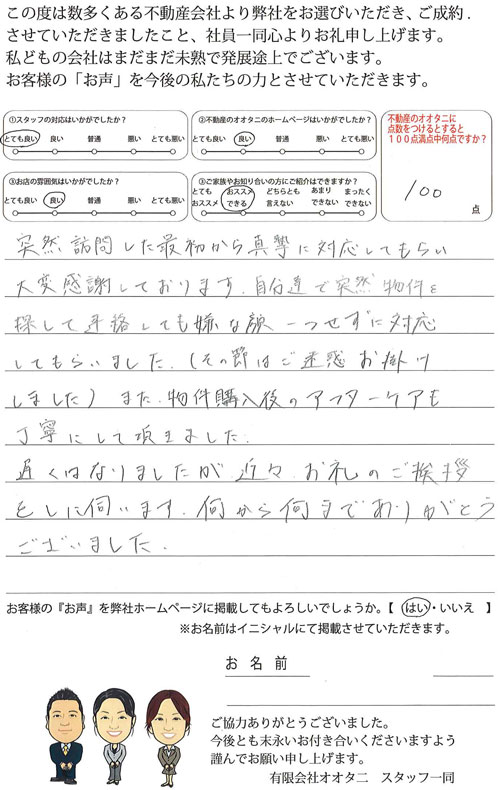 この度は数多くある不動産会社より弊社をお選びいただき、ご成約.
させていただきましたこと、社員一同心よりお礼申し上げます。
私どもの会社はまだまだ未熟で発展途上でございます.
お客様の「お声」を今後の私たちの力とさせていただきます。
①スタッフの対応はいかがでしたか?
とても良い 良い 普通 悪い とても悪い
②不動産のオオタニのホームページはいかがでしたか?
とても良い 良い 普通 悪い とても悪い
③お店の雰囲気はいかがでしたか?
とても良い 良い 普通 悪い とても悪い
③ご家族やお知り合いの方にご紹介はできますか?
とてもおススメ おススメできる どちらとも言えない あまりできない まったくできない
不動産のオオタニに
点数をつけるとすると
100点満点中何点ですか?
100
点
突然訪問した最初から真摯に対応してもらい
大変感謝しております.自分達で突然物件を
探して連絡しても嫌な顔一つせずに対応
してもらいました.(その節はご迷惑お掛け
しました) また.物件購入後のアフターケアも
丁寧にして頂きました.
遅くはなりましたが近々.お礼のご挨拶
をしに伺います.何から何までありがとう
ございました.
お客様の『お声』を弊社ホームページに掲載してもよろしいでしょうか。【 はい・いいえ 】
※お名前はイニシャルにて掲載させていただきます。
お名前
ご協力ありがとうございました。
今後とも末永いお付き合いくださいますよう
謹んでお願い申し上げます。
有限会社オオタニ スタッフ一同